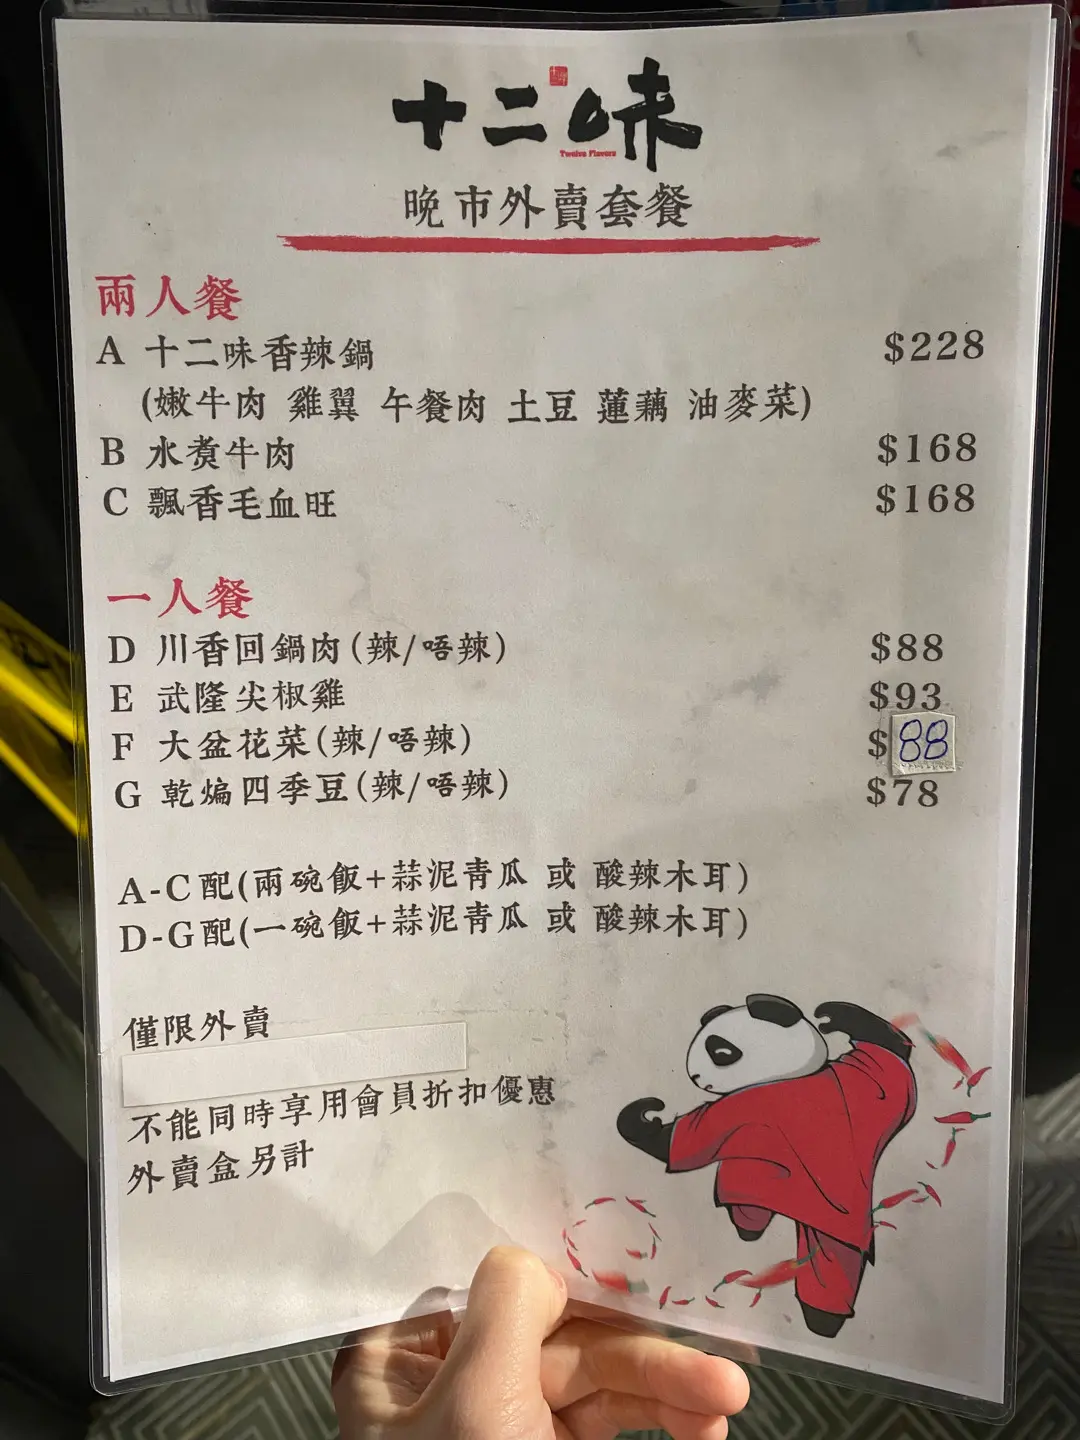 十二味
Twelve Flavors
晚市外賣套餐
兩人餐
A 十二味香辣鍋 $228
(嫩牛肉 雞翼 午餐肉 土豆 蓮藕 油麥菜)
B 水煑牛肉 $168
C 飄香毛血旺 $168
一人餐
D 川香回鍋肉(辣/唔辣) $88
E 武隆尖椒雞 $93
F 大盆花菜(辣/唔辣) $88
G 乾煸四季豆(辣/唔辣) $78
A-C配(兩碗飯+蒜泥青瓜 或 酸辣木耳)
D-G配(一碗飯+蒜泥青瓜 或 酸辣木耳)
僅限外賣
不能同時享用會員折扣優惠
外賣盒另計